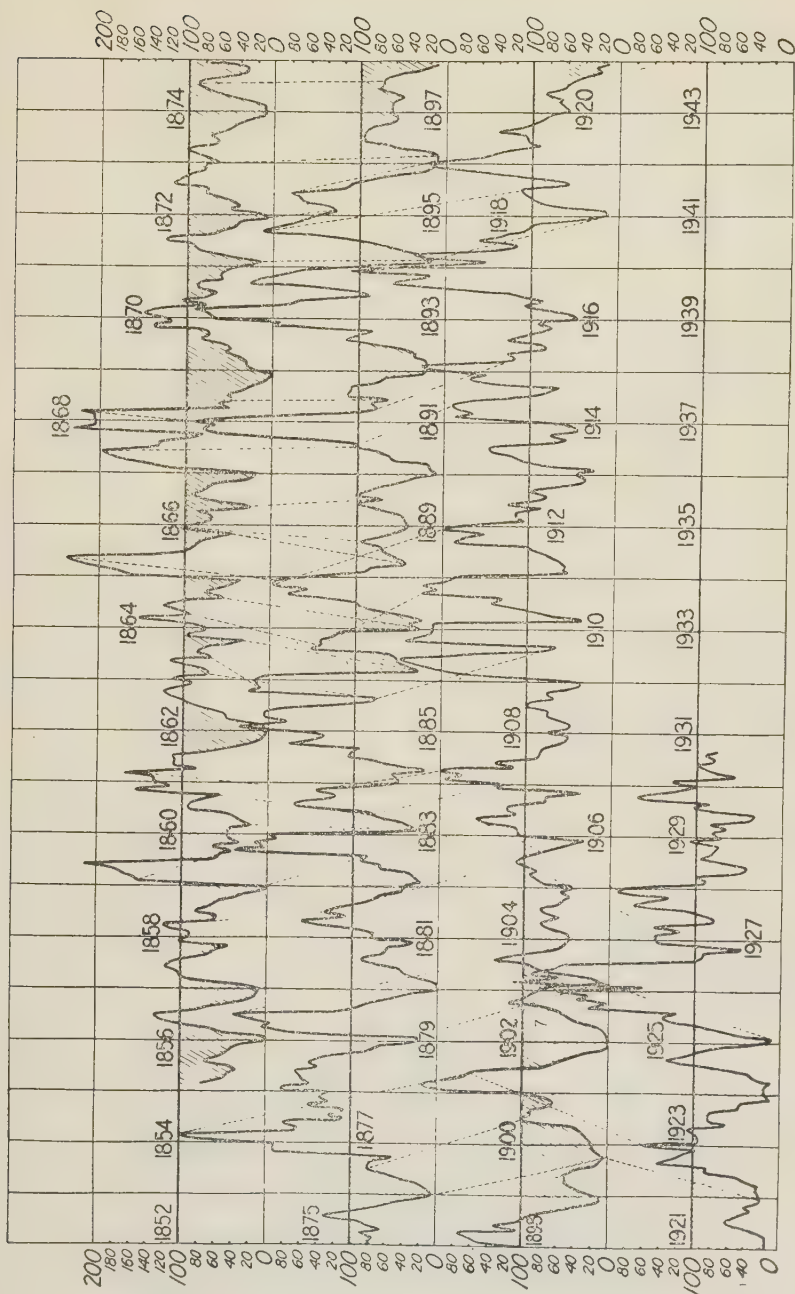 200
180
160
140
120
100
80
60
40
20
0
80
60
40
20
100
80
60
40
20
0
80
60
40
20
100
80
60
40
20
0
80
60
40
20
100
80
60
40
0
1852 1854 1856 1858 1860 1862 1864 1866 1868 1870 1872 1874
1875 1877 1879 1881 1883 1885 1889 1891 1893 1895 1897
1898 1900 1902 1904 1906 1908 1910 1912 1914 1916 1918 1920
1921 1923 1925 1927 1929 1931 1933 1935 1937 1939 1941 1943
200
180
160
140
120
100
80
60
40
20
0
80
60
40
20
100
80
60
40
20
0
80
60
40
20
100
80
60
40
20
0
80
60
40
20
100
80
60
40